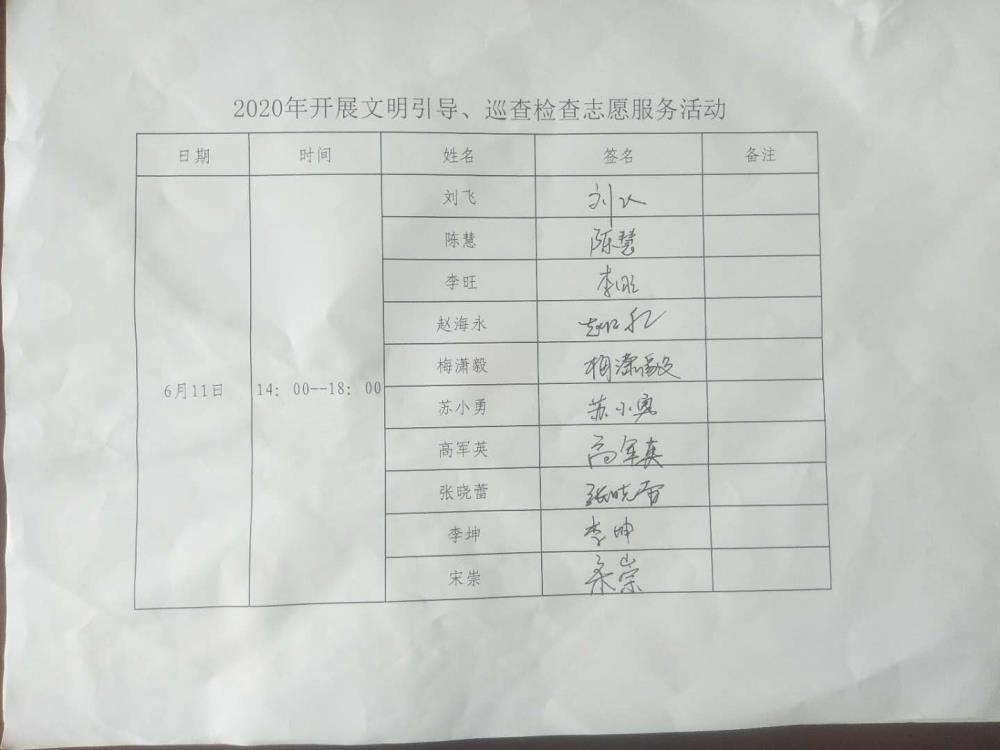 2020年开展文明引导、巡查检查志愿服务活动
日期 时间 姓名 签名 备注
刘飞 刘飞
陈慧 陈慧
李旺 李旺
赵海永 赵海永
梅潇毅 梅潇毅
6月11日 14：00--18：00
苏小勇 苏小勇
高军英 高军英
张晓蕾 张晓雷
李坤 李坤
宋崇 宋崇